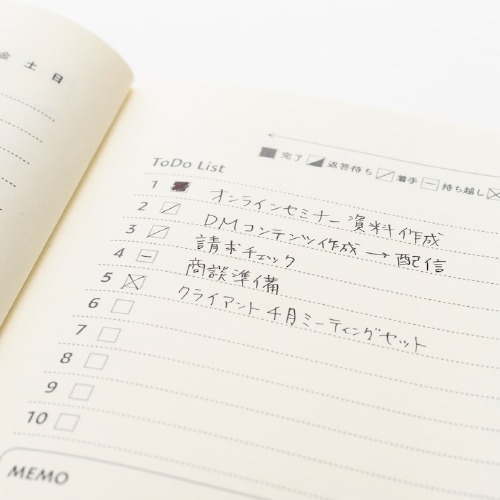 金 土 日
完了 返答待ち 着手 持ち越し
ToDo List
1 オンラインセミナー資料作成
2 DMコンテンツ作成→配信
3 請求チェック
4 商談準備
5 クライアント千月ミーティングセット
6
7
8
9
10
MEMO